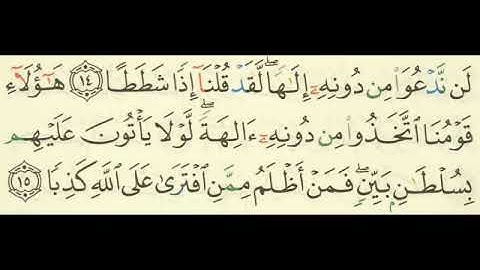 لَن نَّدْعُوَا۟ مِن دُونِهِۦٓ إِلَـٰهًۭا ۖ لَّقَدْ قُلْنَآ إِذًۭا شَطَطًا ١٤ هَـٰٓؤُلَآءِ
قَوْمُنَا ٱتَّخَذُوا۟ مِن دُونِهِۦٓ ءَالِهَةًۭ ۖ لَّوْلَا يَأْتُونَ عَلَيْهِم
بِسُلْطَـٰنٍۭ بَيِّنٍۢ ۖ فَمَنْ أَظْلَمُ مِمَّنِ ٱفْتَرَىٰ عَلَى ٱللَّهِ كَذِبًۭا ١٥